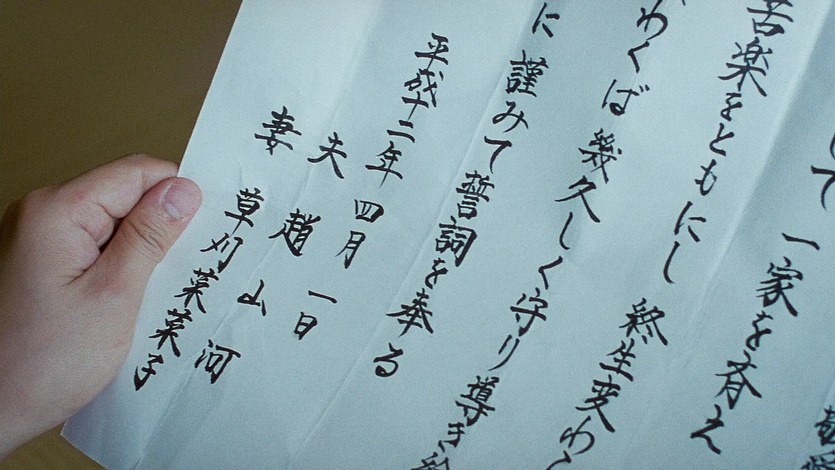 して
苦楽をともにし
一家を斉え
終生変わら
わくば
幾久しく守り導き給
に
謹みて誓詞を奉る
平成十二年四月一日
夫 趙山河
妻 草刈菜菜子